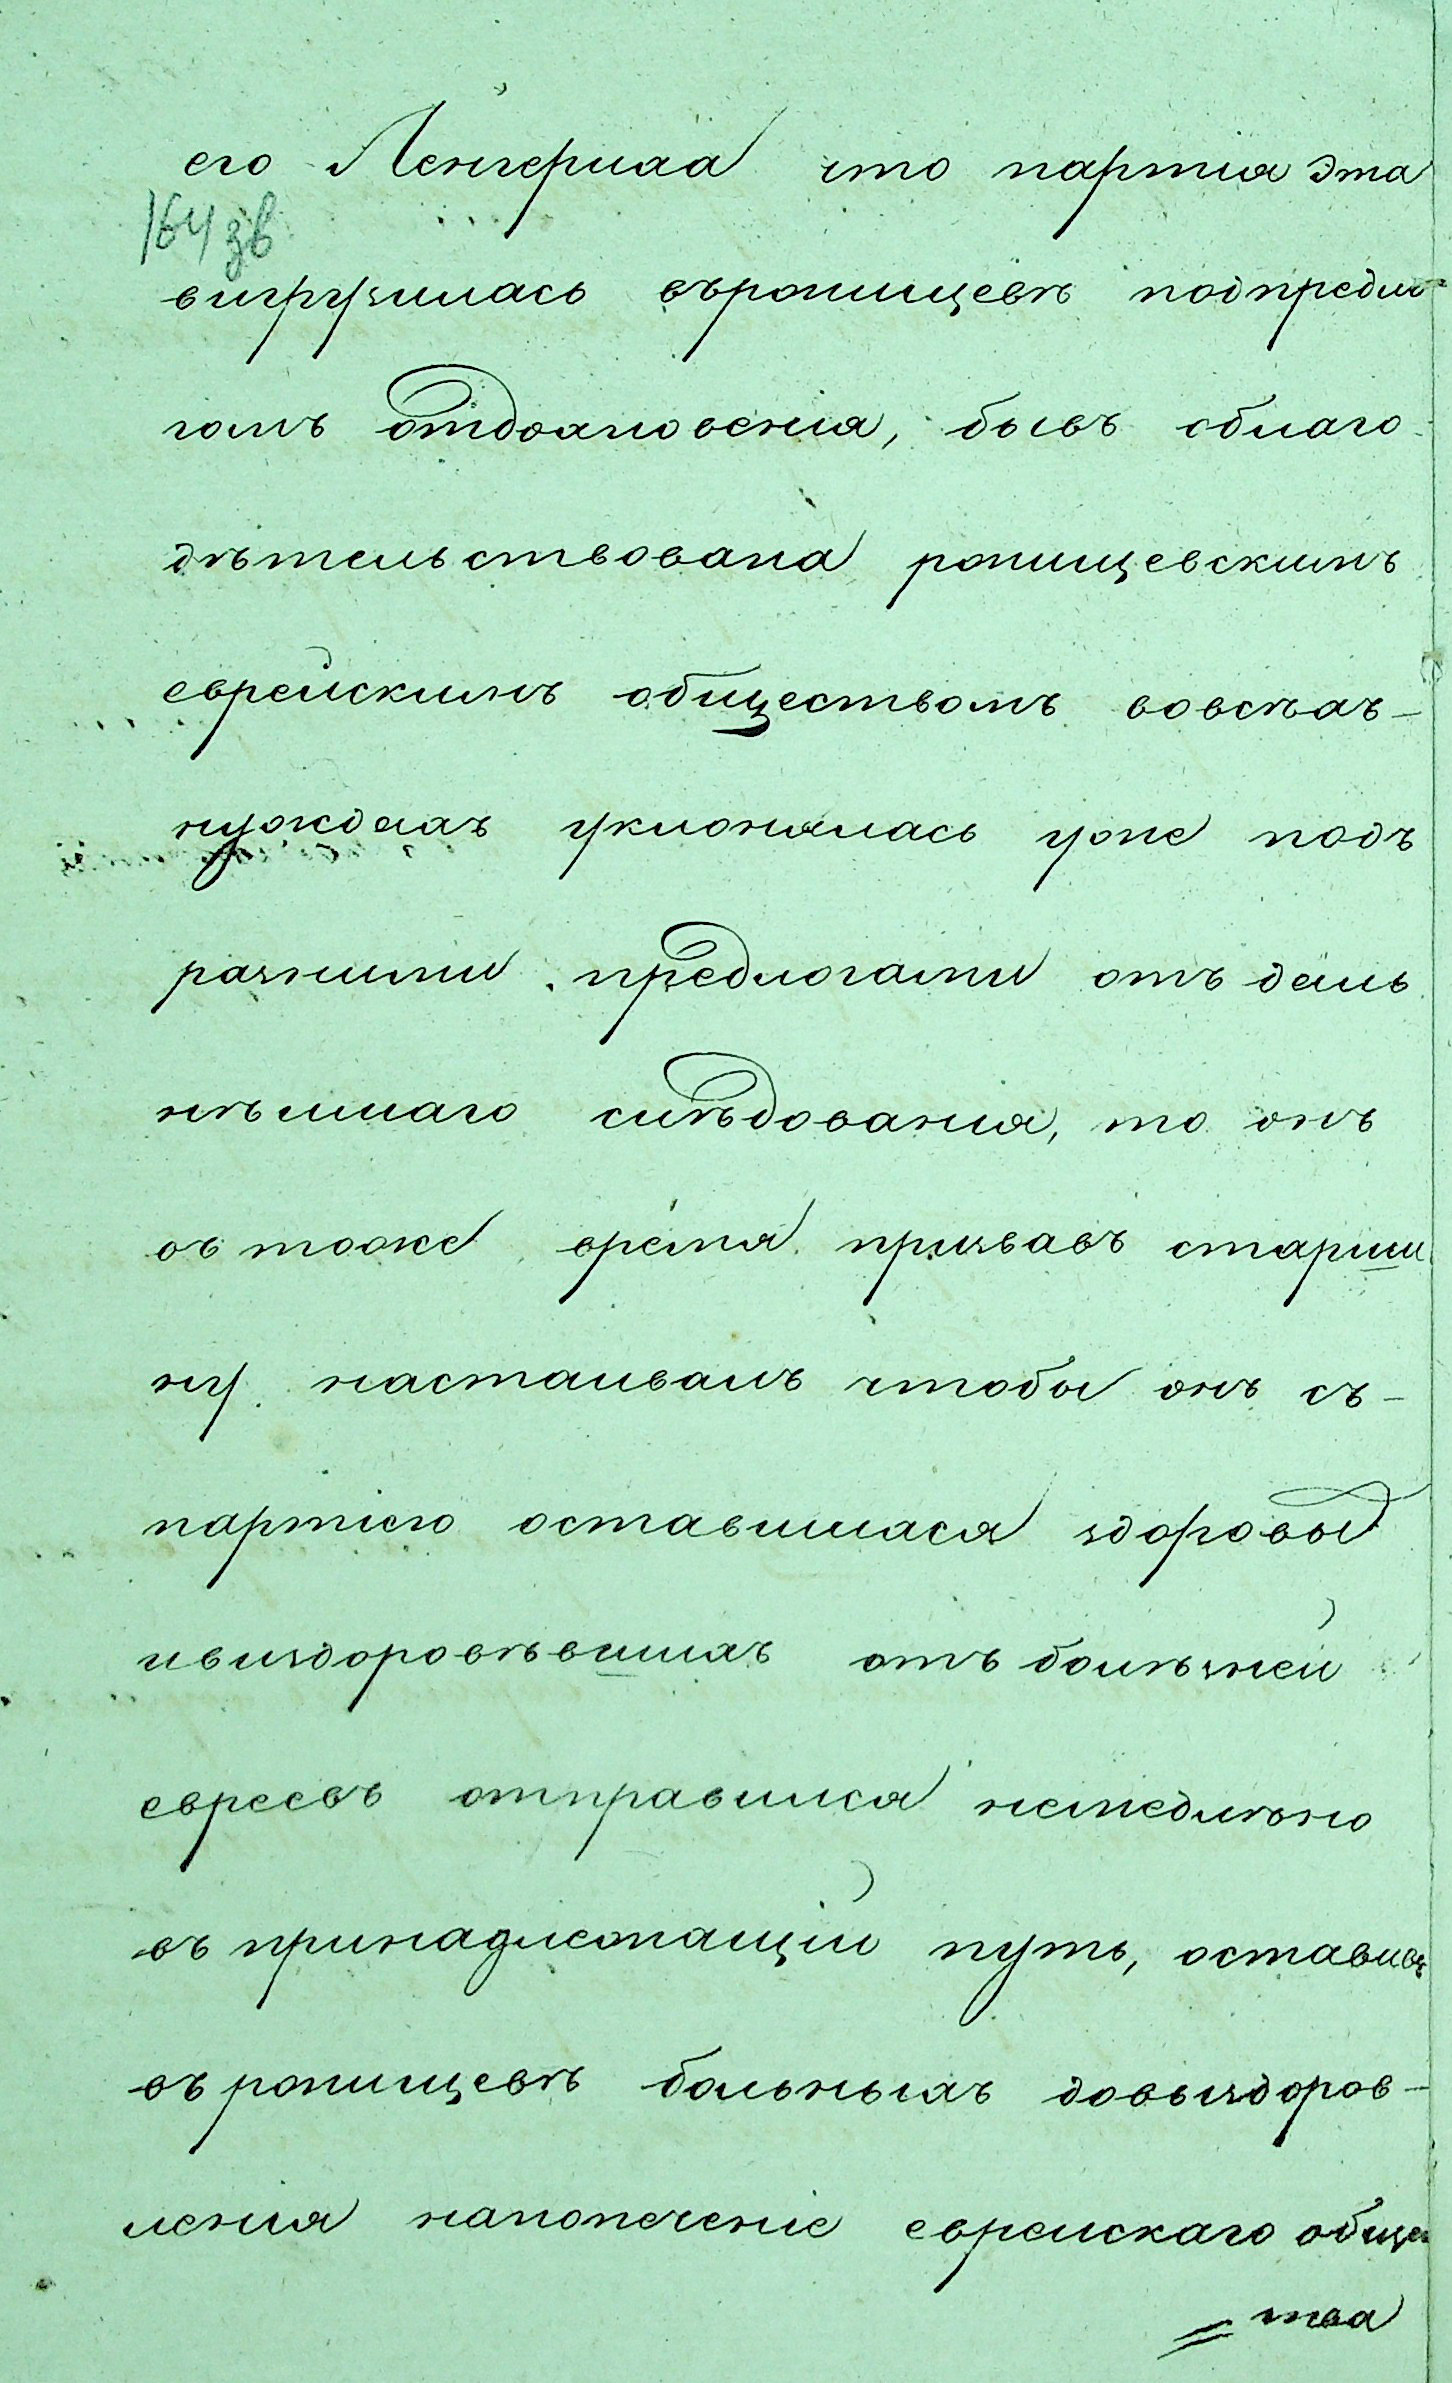 его Ленгериха что партія эта
164 зв
вигрузилась върыпищевѣ подпредло
гомъ отдохновенія, бывъ облаго
дѣтельствована рыпищевскимъ
еврейскимъ обществомъ вовсѣхъ-
нуждахъ уклонялась уже подъ
разними предлогами отъ даль
нѣишаго слѣдованія, то онъ
въ тоже время призвавъ старши
ну настаивалъ чтобы онъ съ-
партіею оставшихся здоровы
ивиздоровѣвшихъ отъ болѣзней
евреевъ отправился немедлѣно
въ принадлежащій путь, оставивъ
въ рыпищевѣ больныхъ довыздоров-
ленія напопеченіе еврейскаго общес
= тва